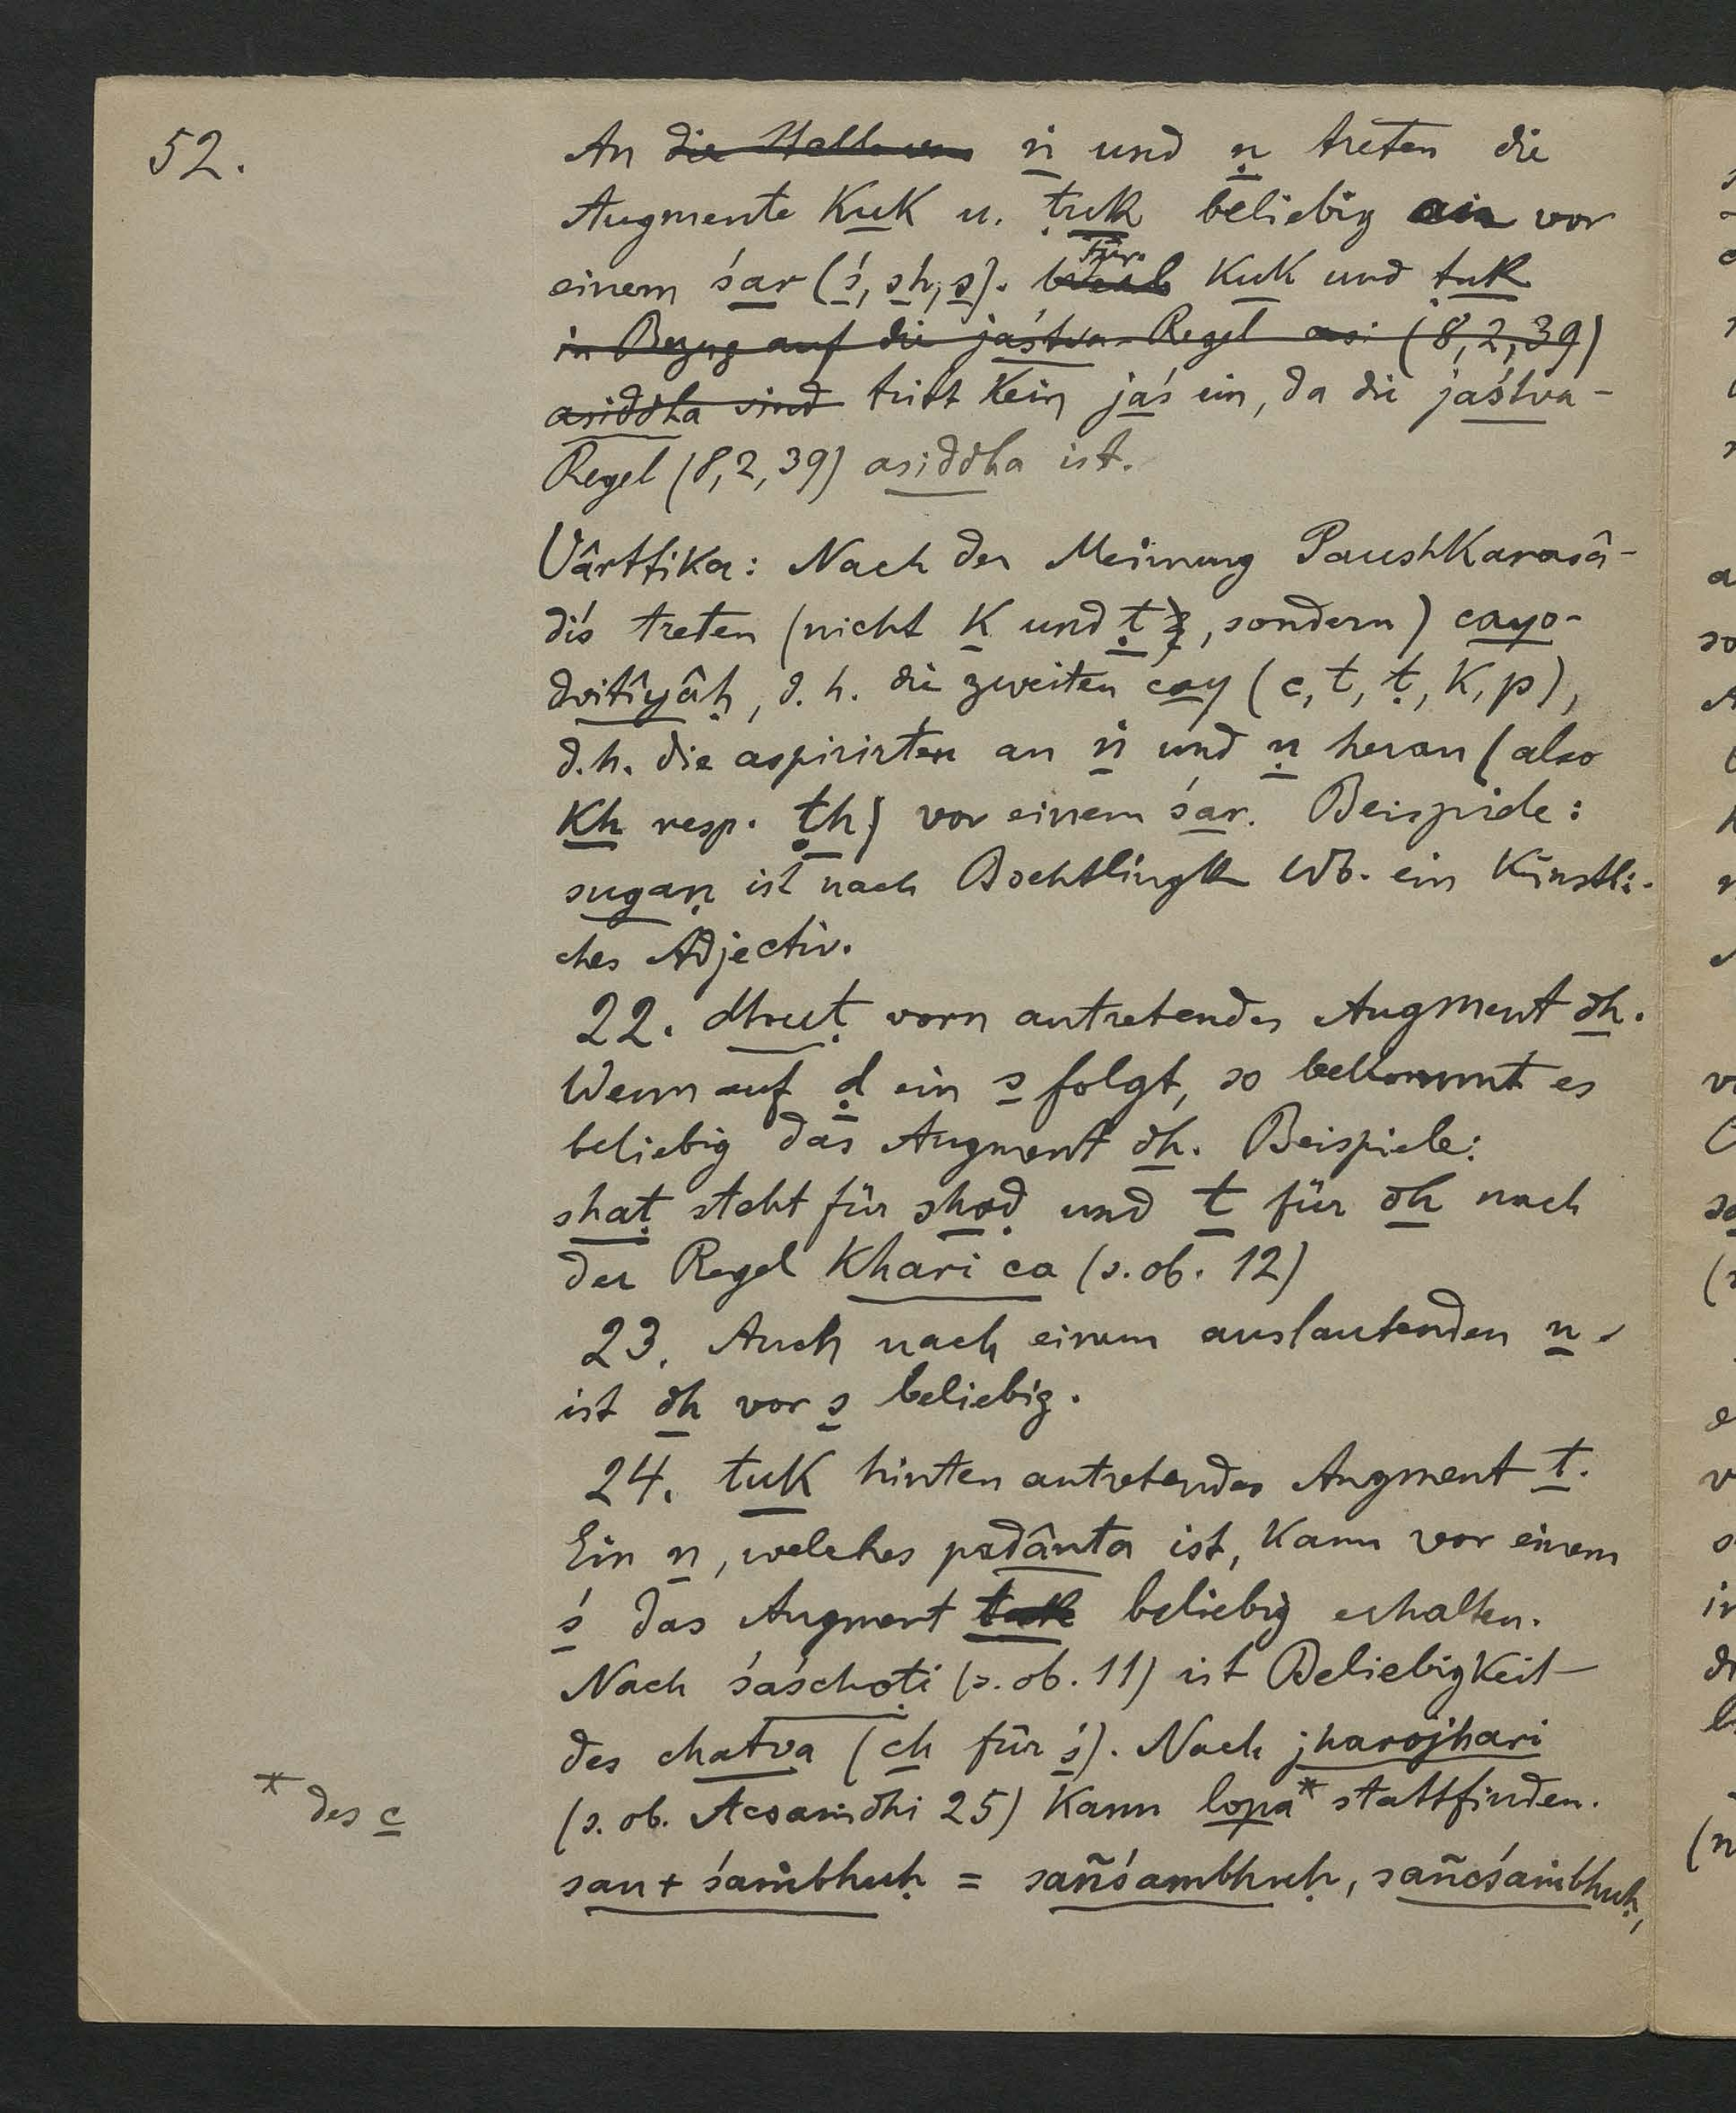 52.
An die ṅ und ṇ treten die
Augmente kuk u. ṭuk beliebig ein vor
einem śar (ś, sh, s). Für kuk und ṭuk
in Bezug auf die jaśtva-Regel asi (8,2,39)
asiddha sind tritt kein jaś ein, da die jaśtva-
Regel (8,2,39) asiddha ist.
Vârttika: Nach der Meinung Paushkarasâ-
di's treten (nicht k und ṭ, sondern) cayo-
dvitîyâḥ, d. h. die zweiten cay (c, t, ṭ, k, p),
d.h. die aspirirten an ṅ und ṇ heran (also
kh resp. ṭh) vor einem śar. Beispiele:
sugaṇ ist nach Boehtlingk Wb. ein künstli-
ches Adjectiv.
22. dhuṭ vorn antretendes Augment dh.
Wenn auf ḍ ein s folgt, so bekommt es
beliebig das Augment dh. Beispiele:
shaṭ steht für shaḍ und t für dh nach
der Regel khari ca (s. ob. 12)
23. Auch nach einem auslautenden n
ist dh vor s beliebig.
24. tuk hinten antretendes Augment t.
Ein n, welches padânta ist, kann vor einem
ś das Augment tuk beliebig erhalten.
Nach śaśchoṭi (s. ob. 11) ist Beliebigkeit
des chatva (ch für ś). Nach jharojhari
(s. ob. Acsaṁdhi 25) kann lopa* stattfinden.
* des c
san + śaṁbhuḥ = sañśambhuḥ, sañcśaṁbhuḥ,